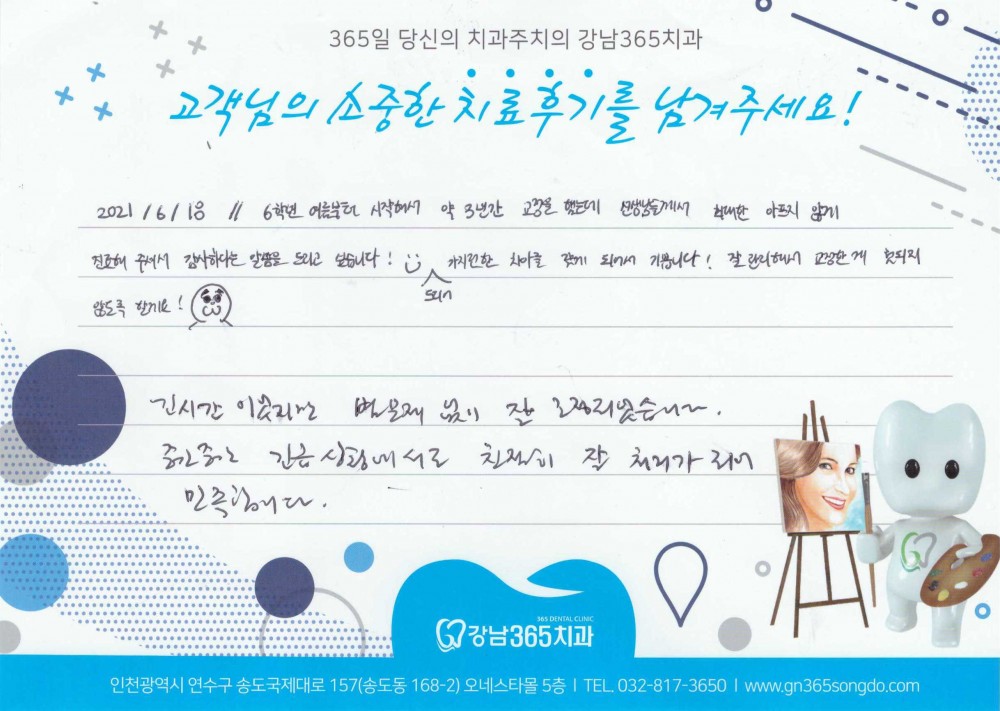 365일 당신의 치과주치의 강남365치과
고객님의 소중한 치료후기를 남겨주세요!
2021/6/18 // 6학년 여름부터 시작해서 약 3년간 교정을 했는데 선생님들께서 최대한 아프지 않게
진료해 주셔서 감사하다는 말씀을 드리고 싶습니다! 가지런한 치아를 갖게 되어서 기쁩니다! 잘 관리해서 교정한 게 헛되지
드디어
않도록 할게요!
긴시간 이었지만 별문제 없이 잘 교정되었습니다.
중간중간 긴급상황에서도 친절히 잘 처리가 되어
만족합니다.
365 DENTAL CLINIC
강남365치과
인천광역시 연수구 송도국제대로 157(송도동 168-2) 오네스타몰 5층 I TEL. 032-817-3650 I www.gn365songdo.com